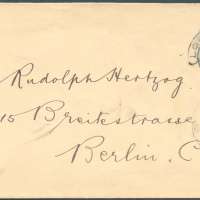 Rudolph Hertzog.
15 Breitestrasse
Berlin. C